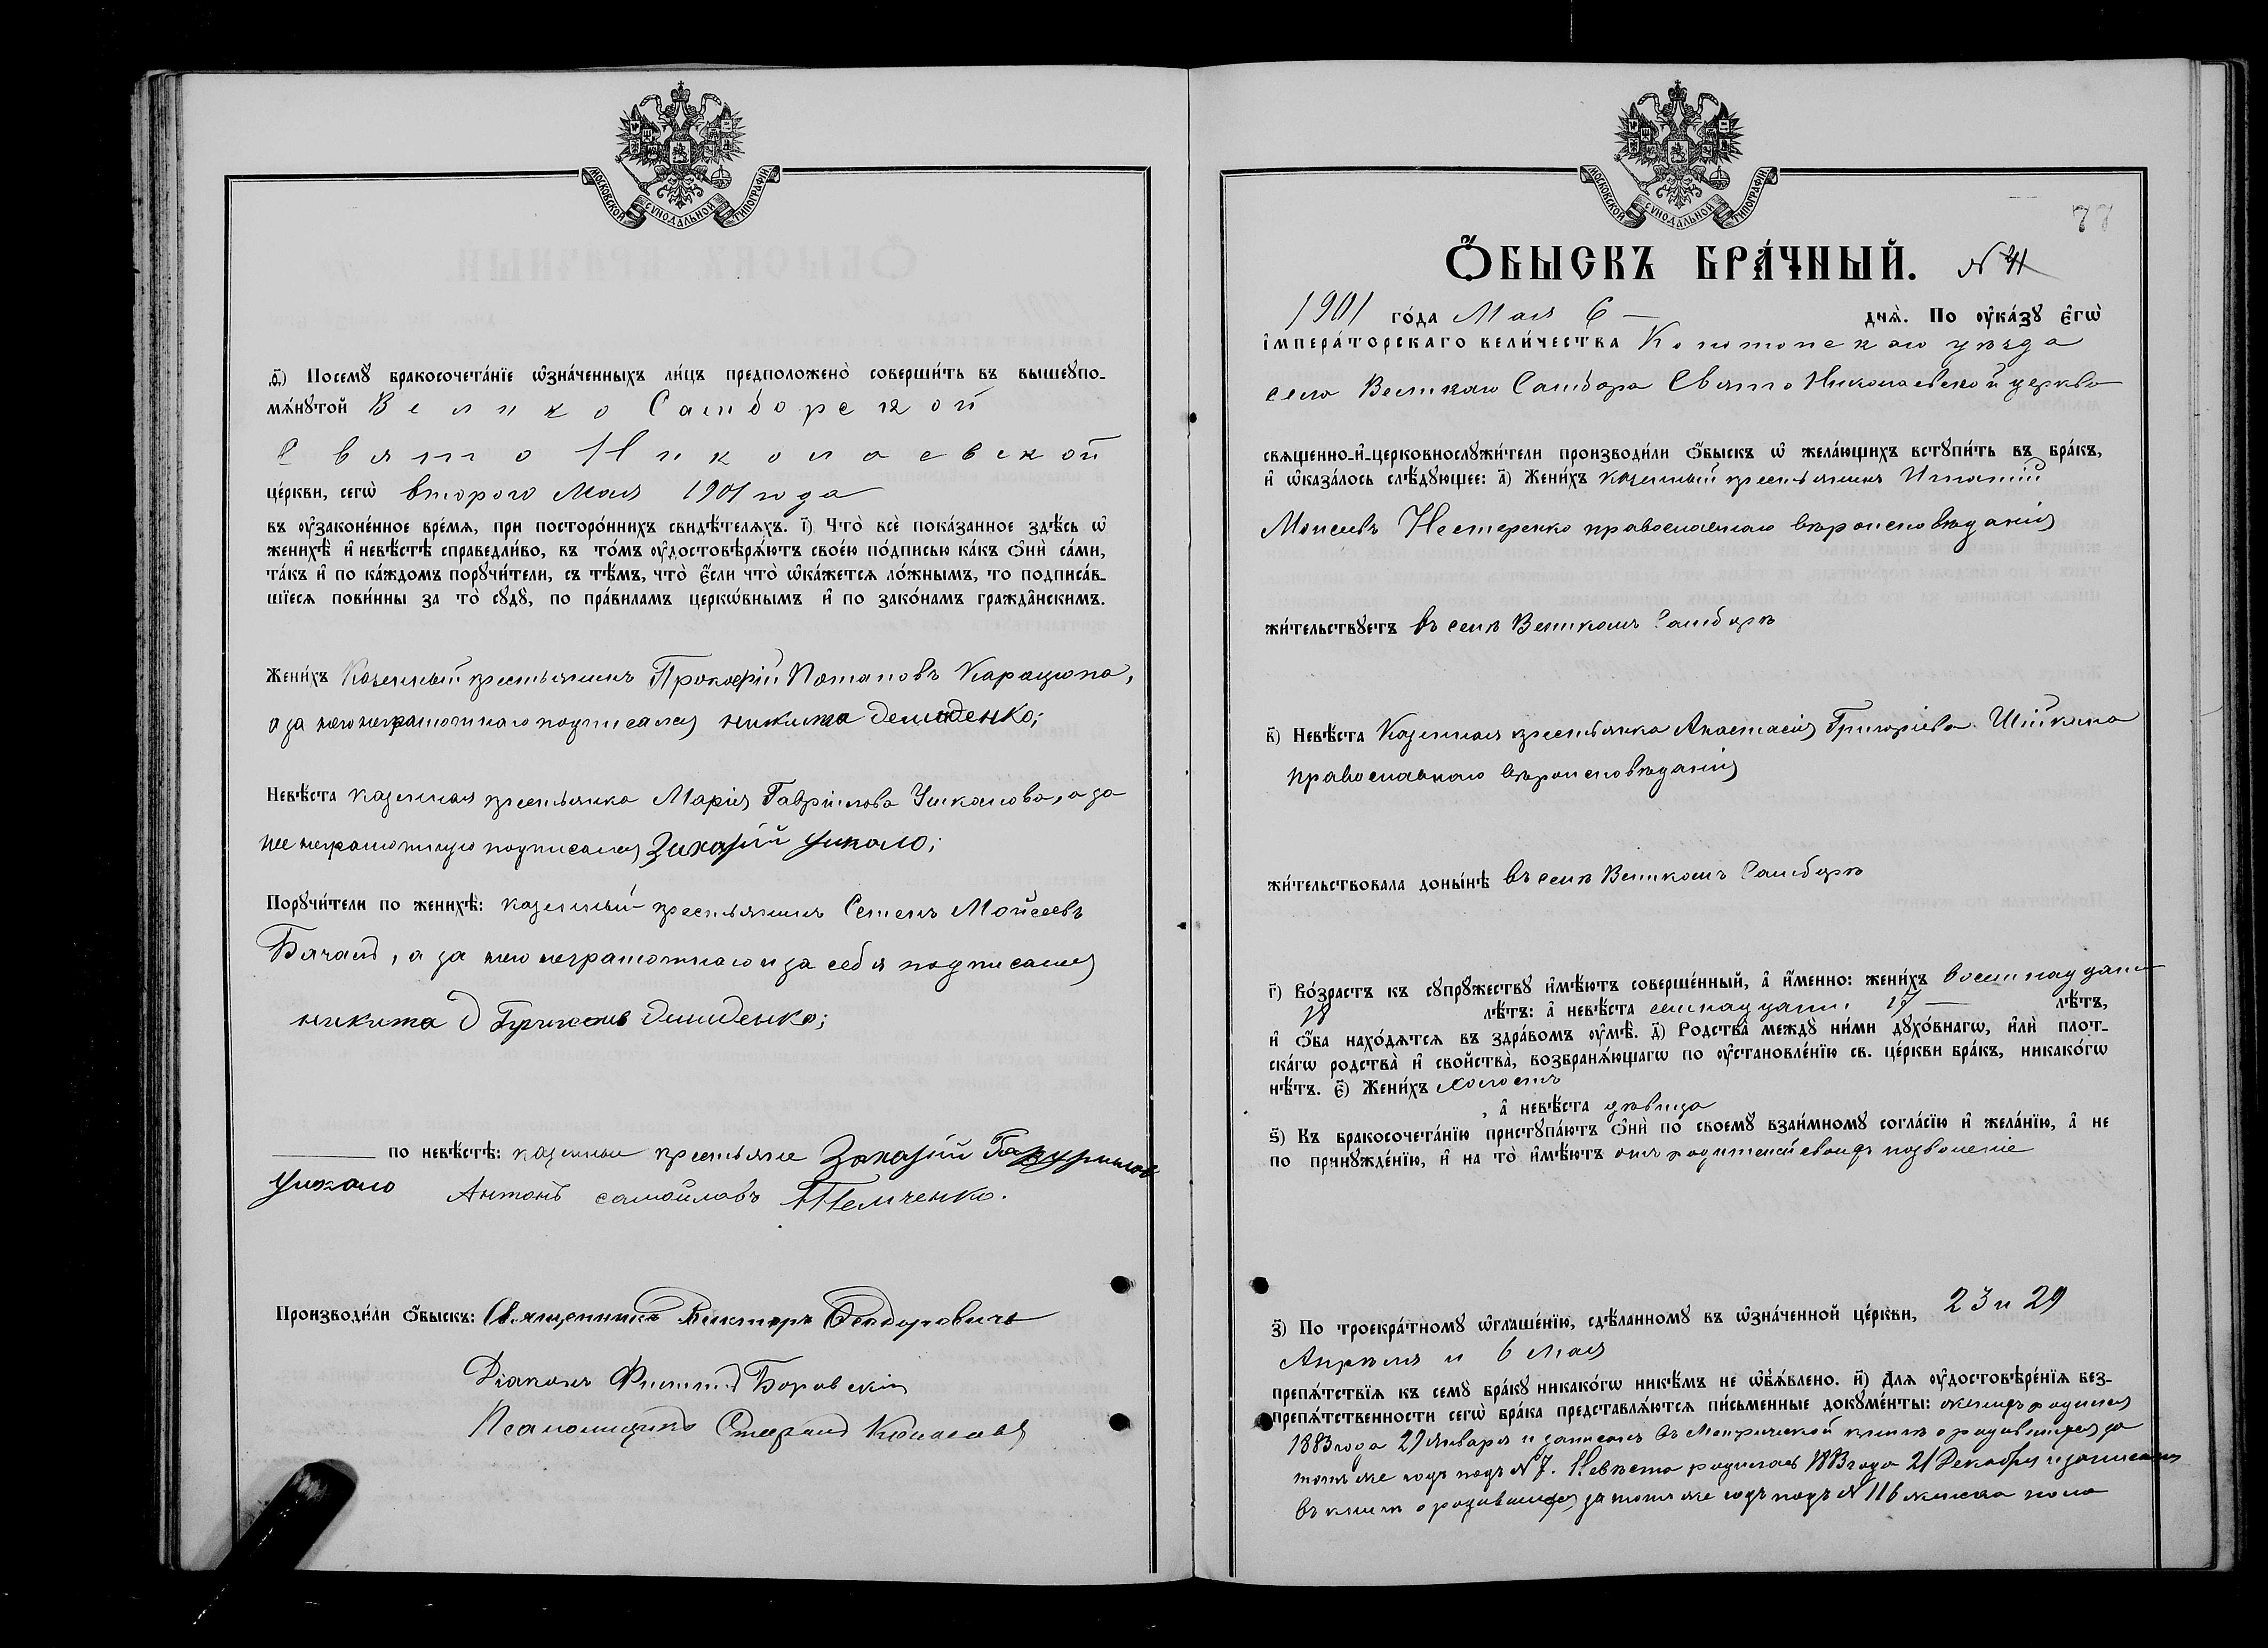 МОСКОВСКОЙ СѴНОДАЛЬНОЙ ТИПОГРАФІИ
ѳ҃) Посемꙋ бракосочета́нїе ѡ҆зна́ченныхъ ли́цъ предположено̀ соверши́ть въ вышеꙋпо-
мѧ́нꙋтой Велико Самборской
Свято Николаевской
це́ркви, сегѡ̀ второго Мая 1901 года
въ ᲂу҆законе́нное вре́мѧ, при посторо́ннихъ свидѣ́телѧхъ. і҃) Что̀ всѐ пока́занное здѣ́сь ѡ҆
женихѣ̀ и҆ невѣ́стѣ справедли́во, въ то́мъ ᲂу҆достовѣрѧ́ютъ свое́ю по́дписью ка́къ ѻ҆нѝ са́ми,
та́къ и҆ по ка́ждомъ порꙋчи́тели, съ тѣ́мъ, что̀ є҆́сли что̀ ѡ҆ка́жетсѧ ло́жнымъ, то подписа́в-
шїесѧ пови́нны за то̀ сꙋдꙋ̀, по пра́виламъ церкѡ́внымъ и҆ по зако́намъ гражда̂нскимъ.
Жени́хъ Казенный крестьянинъ Прокофій Потаповъ Карацюпа,
а за него неграмотнаго подписался никита демиденко;
Невѣ́ста казенная крестьянка Марія Гавріилова Ушкалова, а за
нее неграмотную подписался Захарій Ушкало;
Порꙋчи́тели по женихѣ̀: казенный крестьянинъ Семенъ Мойсеевъ
а за него неграмотнаго и за себя подписался
никита демиденко;
по невѣ́стѣ: казенные крестьяне Захарій
Ушкало Антонъ самойловъ
Производи́ли ѻ҆́быскъ: Священникъ Викторъ Ѳеодоровичъ
Діаконъ Филиппъ Боровскій
Псаломщикъ Стефанъ
МОСКОВСКОЙ СѴНОДАЛЬНОЙ ТИПОГРАФІИ
77
Ѻ҆́БЫСКЪ БРА́ЧНЫЙ. № 41
1901 го́да Мая 6 — днѧ̀. По ᲂу҆ка́зꙋ є҆гѡ̀
і҆мпера́торскаго вели́чества Конотопскаго уѣзда
села Великаго Самбора Свято Николаевской церкви
свѧщенно-и҆-церковнослꙋжи́тели производи́ли ѻ҆́быскъ ѡ҆ жела́ющихъ встꙋпи́ть въ бра́къ,
и҆ ѡ҆каза́лось слѣ́дꙋющее: а҃) Жени́хъ казенный крестьянинъ Игнатій
Моисеевъ Нестеренко православнаго вѣроисповѣданія
жи́тельствꙋетъ въ селѣ Великомъ Самборѣ
в҃) Невѣ́ста Казенная крестьянка Анастасія Григоріева
православнаго вѣроисповѣданія
жи́тельствовала доны́нѣ въ селѣ Великомъ Самборѣ
г҃) Во́зрастъ къ сꙋпрꙋ́жествꙋ и҆мѣ́ютъ соверше́нный, а҆ и҆́менно: жени́хъ восемнадцати
18 лѣ́тъ: а҆ невѣ́ста семнадцати 17 — лѣ́тъ,
и҆ ѻ҆́ба нахо́дѧтсѧ въ здра́вомъ ᲂу҆мѣ̀. д҃) Родства̀ междꙋ̀ ни́ми дꙋхо́внагѡ, и҆лѝ плот-
ска́гѡ родства̀ и҆ свойства̀, возбранѧ́ющагѡ по ᲂу҆становле́нїю св. це́ркви бра́къ, никако́гѡ
нѣ́тъ. є҃) Жени́хъ холостъ
, а҆ невѣ́ста дѣвица
ѕ҃) Къ бракосочета́нїю пристꙋпа́ютъ ѻ҆нѝ по своемꙋ̀ взаи́мномꙋ согла́сїю и҆ жела́нїю, а҆ не
по принꙋжде́нїю, и҆ на то̀ и҆мѣ́ютъ отъ родителей своихъ позволеніе
з҃) По троекра́тномꙋ ѡ҆глаше́нїю, сдѣ́ланномꙋ въ ѡ҆зна́ченной це́ркви, 23 и 29
Апрѣля и 6 Мая
препѧ́тствїѧ къ семꙋ̀ бра́кꙋ никако́гѡ никѣ́мъ не ѡ҆б̾ѧ́влено. и҃) Для ᲂу҆достовѣре́нїѧ без-
препѧ́тственности сегѡ̀ бра́ка представлѧ́ютсѧ пи́сьменные докꙋме́нты: женихъ родился
1883 года 29 января и записанъ въ Метрической книгѣ о родившихся за
тотъ же годъ подъ № 7. Невѣста родилась 1883 года 21 Декабря и записана
въ книгѣ о родившихся за тотъ же годъ подъ № 116 женска пола